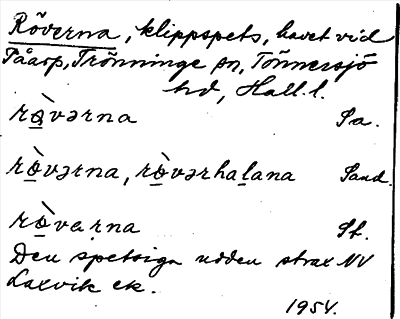 Röverna, klippspets, havet vid
Påarp, Trönninge sn, Tönnersjö
hd, Hall. l.
rò̱vərna Sa.
rò̱vərna, rò̱vərhaḻana Sand.
rò̱varna St.
Den spetsiga udden strax NV
Laxvik ek.
1954.